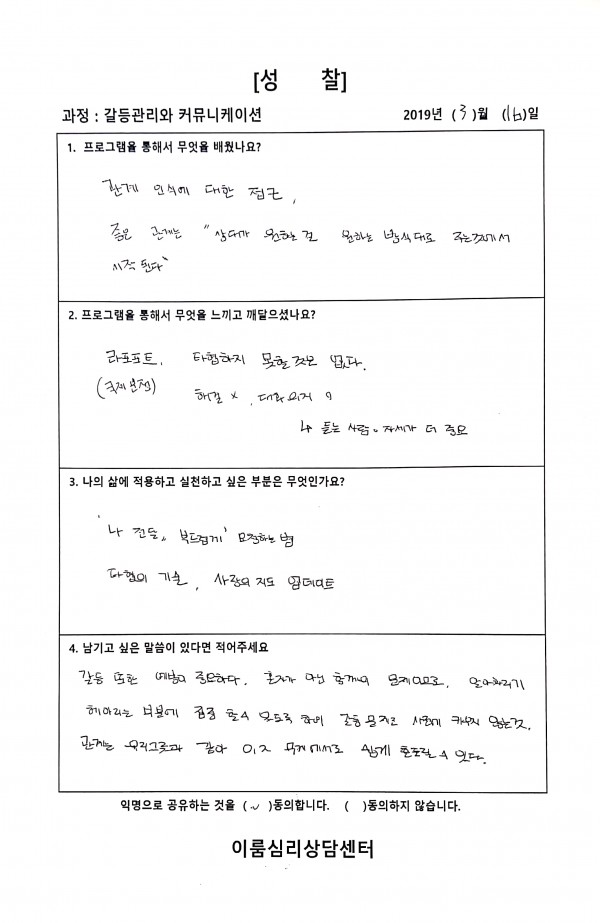 [성 찰]
과정 : 갈등관리와 커뮤니케이션 2019년 (3)월 (16)일
1. 프로그램을 통해서 무엇을 배웠나요?
관계 인식에 대한 접근,
좋은 관계는 "상대가 원하는 걸 원하는 방식대로 주는것에서
시작된다"
2. 프로그램을 통해서 무엇을 느끼고 깨달으셨나요?
라포포트, 타협하지 못할 것은 없다.
(국제분쟁) 해결 x, 대화의지 o
↳ 듣는 사람의 자세가 더 중요
3. 나의 삶에 적용하고 실천하고 싶은 부분은 무엇인가요?
'나 전달, 부드럽게' 요청하는 법
타협의 기술, 사랑의 지도 업데이트
4. 남기고 싶은 말씀이 있다면 적어주세요
갈등 또한 예방이 중요하다. 혼자가 아닌 함께의 문제이므로. 알아차리기
헤아리는 부분에 집중 할 수 있도록 하여 갈등을 키우지 않는것.
관계는 유리그릇과 같아 에서도 쉽게 흐트릴 수 있다.
익명으로 공유하는 것을 (✓)동의합니다. ( )동의하지 않습니다.
이룸심리상담센터